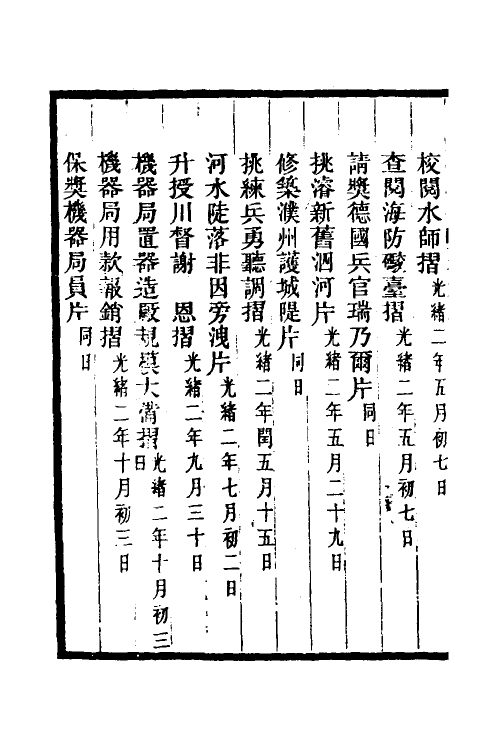 校閱水師摺光緒二年五月初七日
查閱海防礮臺摺光緒二年五月初七日
請獎德國兵官瑞乃爾片同日
挑濬新舊泗河片光緒二年五月二十九日
修築濮州護城隄片同日
挑練兵勇聽調摺光緒二年閏五月十五日
河水陡落非因旁洩片光緒二年七月初二日
升授川督謝　恩摺光緒二年九月三十日
機器局置器造厰規模大備摺光緒二年十月初三日
機器局用款報銷摺光緒二年十月初三日
保獎機器局員片同日